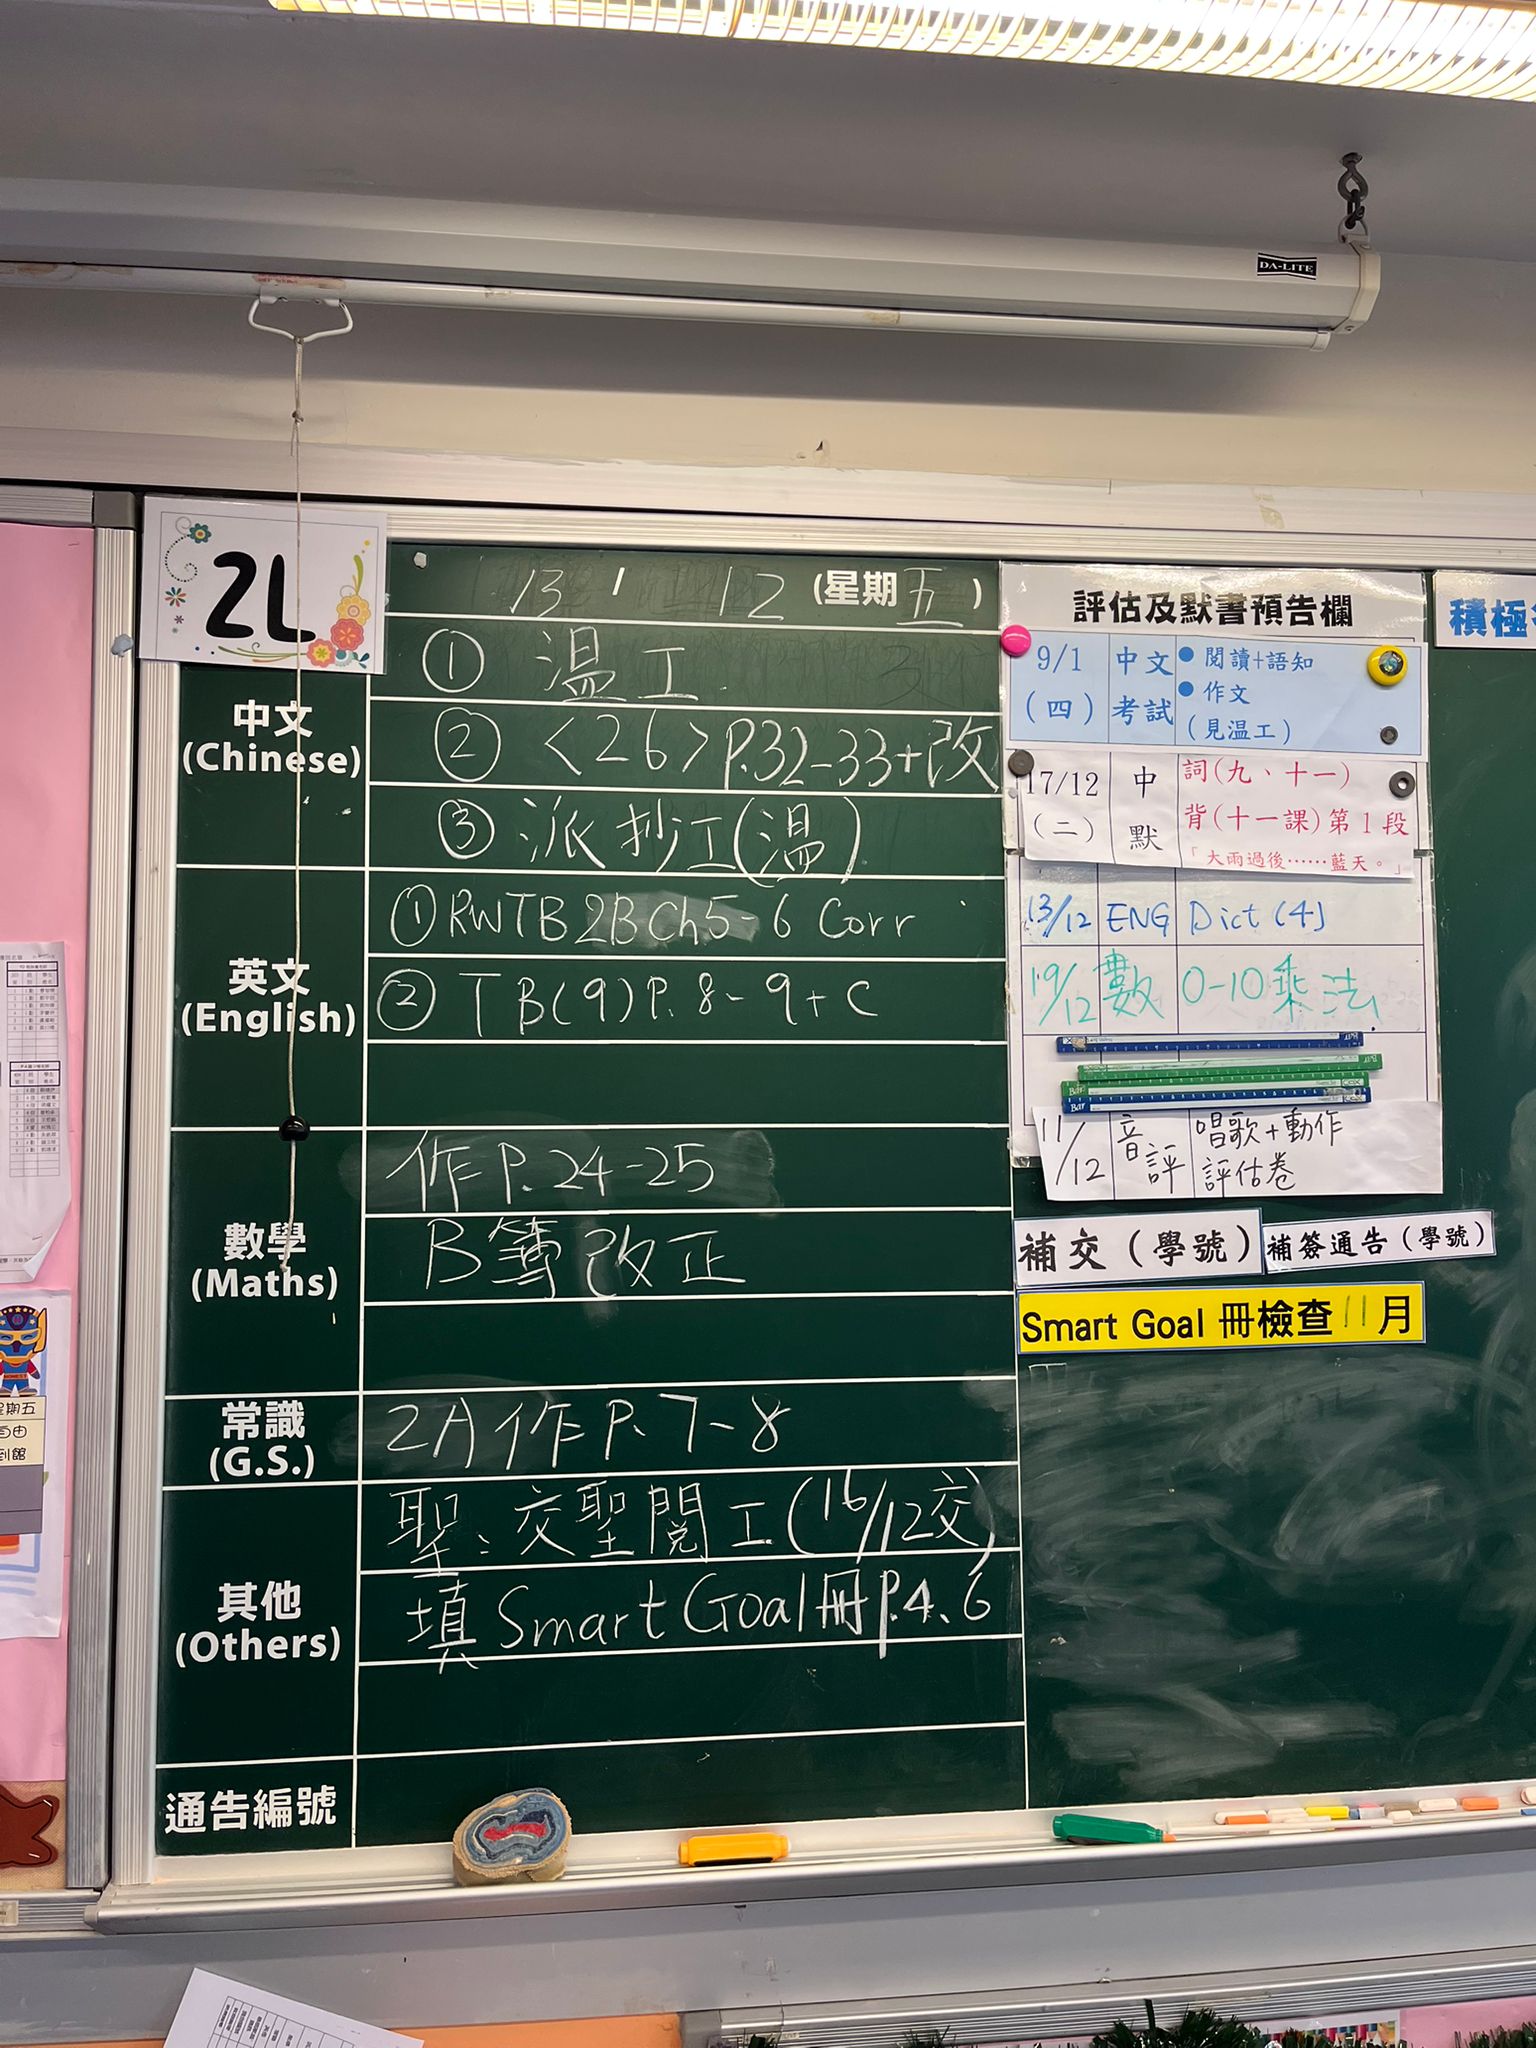 DA-LITE
2L
13 / 12 (星期五)
中文
(Chinese)
① 温工
② <26>P.32-33+改
③ 派抄工(温)
英文
(English)
① RWTB2B Ch5-6 Corr
② TB(9)P.8-9+C
數學
(Maths)
作P.24-25
B簿改正
常識
(G.S.)
2A作P.7-8
其他
(Others)
聖:交聖閱工(16/12交)
填Smart Goal冊P.4、6
通告編號
評估及默書預告欄
9/1 中文 • 閱讀+語知
(四) 考試 • 作文
(見温工)
17/12 中 詞(九、十一)
(二) 默 背(十一課)第1段
「大雨過後……藍天。」
13/12 ENG Dict (4)
19/12 數 0-10乘法
11/12 音評 唱歌+動作
評估卷
補交(學號) 補簽通告(學號)
Smart Goal 冊檢查11月
積極
星期五
自由
到館